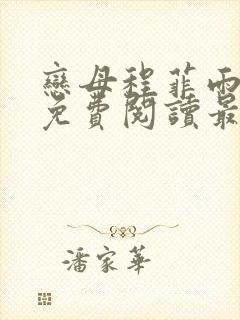 戀母程菲雨
免費閱讀最
潘家華